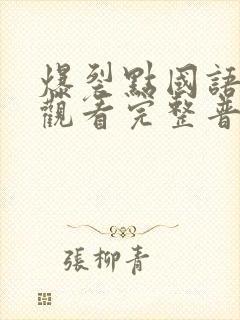 爆裂點國語
觀看完整普
張柳青